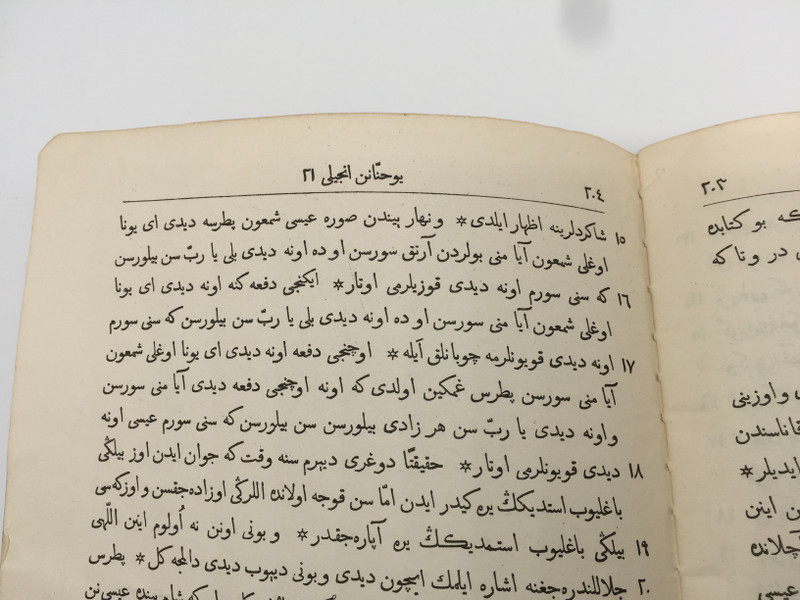 یوحنّانن انجیلی ٢١
٢٠٤
١٥ شاکردلرینه اظهار ایلدی * و نهار ییندن صوره عیسی شمعون پطرسه دیدی ای یونا
اوغلی شمعون آیا منی بولردن آرتق سورسن او ده اونه دیدی بلی یا ربّ سن بیلورسن
١٦ که سنی سورم اونه دیدی قوزیلرمی اوتار * ایکنجی دفعه کنه اونه دیدی ای یونا
اوغلی شمعون آیا منی سورسن او ده اونه دیدی بلی یا ربّ سن بیلورسن که سنی سورم
١٧ اونه دیدی قویونلرمه چوبانلق آیله * اوچنجی دفعه اونه دیدی ای یونا اوغلی شمعون
آیا منی سورسن پطرس غمکین اولدی که اونه اوچنجی دفعه دیدی آیا منی سورسن
و اونه دیدی یا ربّ سن هر زادی بیلورسن سن بیلورسن که سنی سورم عیسی اونه
١٨ دیدی قویونلرمی اوتار * حقیقتًا دوغری دیرم سنه وقت که جوان ایدن اوز بیلکی
باغلیوب استدیکڭ یره کیدر ایدن امّا سن قوجه اولانده اللرڭی اوزاده‌جقسن و اوزکه‌سی
١٩ بیلکی باغلیوب استمدیکڭ یره آپاره‌جقدر * و بونی اونن نه اُولوم اینن اللّهی
٢٠ جلاللندره‌جغنه اشاره ایلمك ایچون دیدی و بونی دیوب دیدی دالمجه کل * پطرس
٢٠٣
که بو کتابده
در و تا که
و اوزینی
ایدیلر *
اینن
عیسی